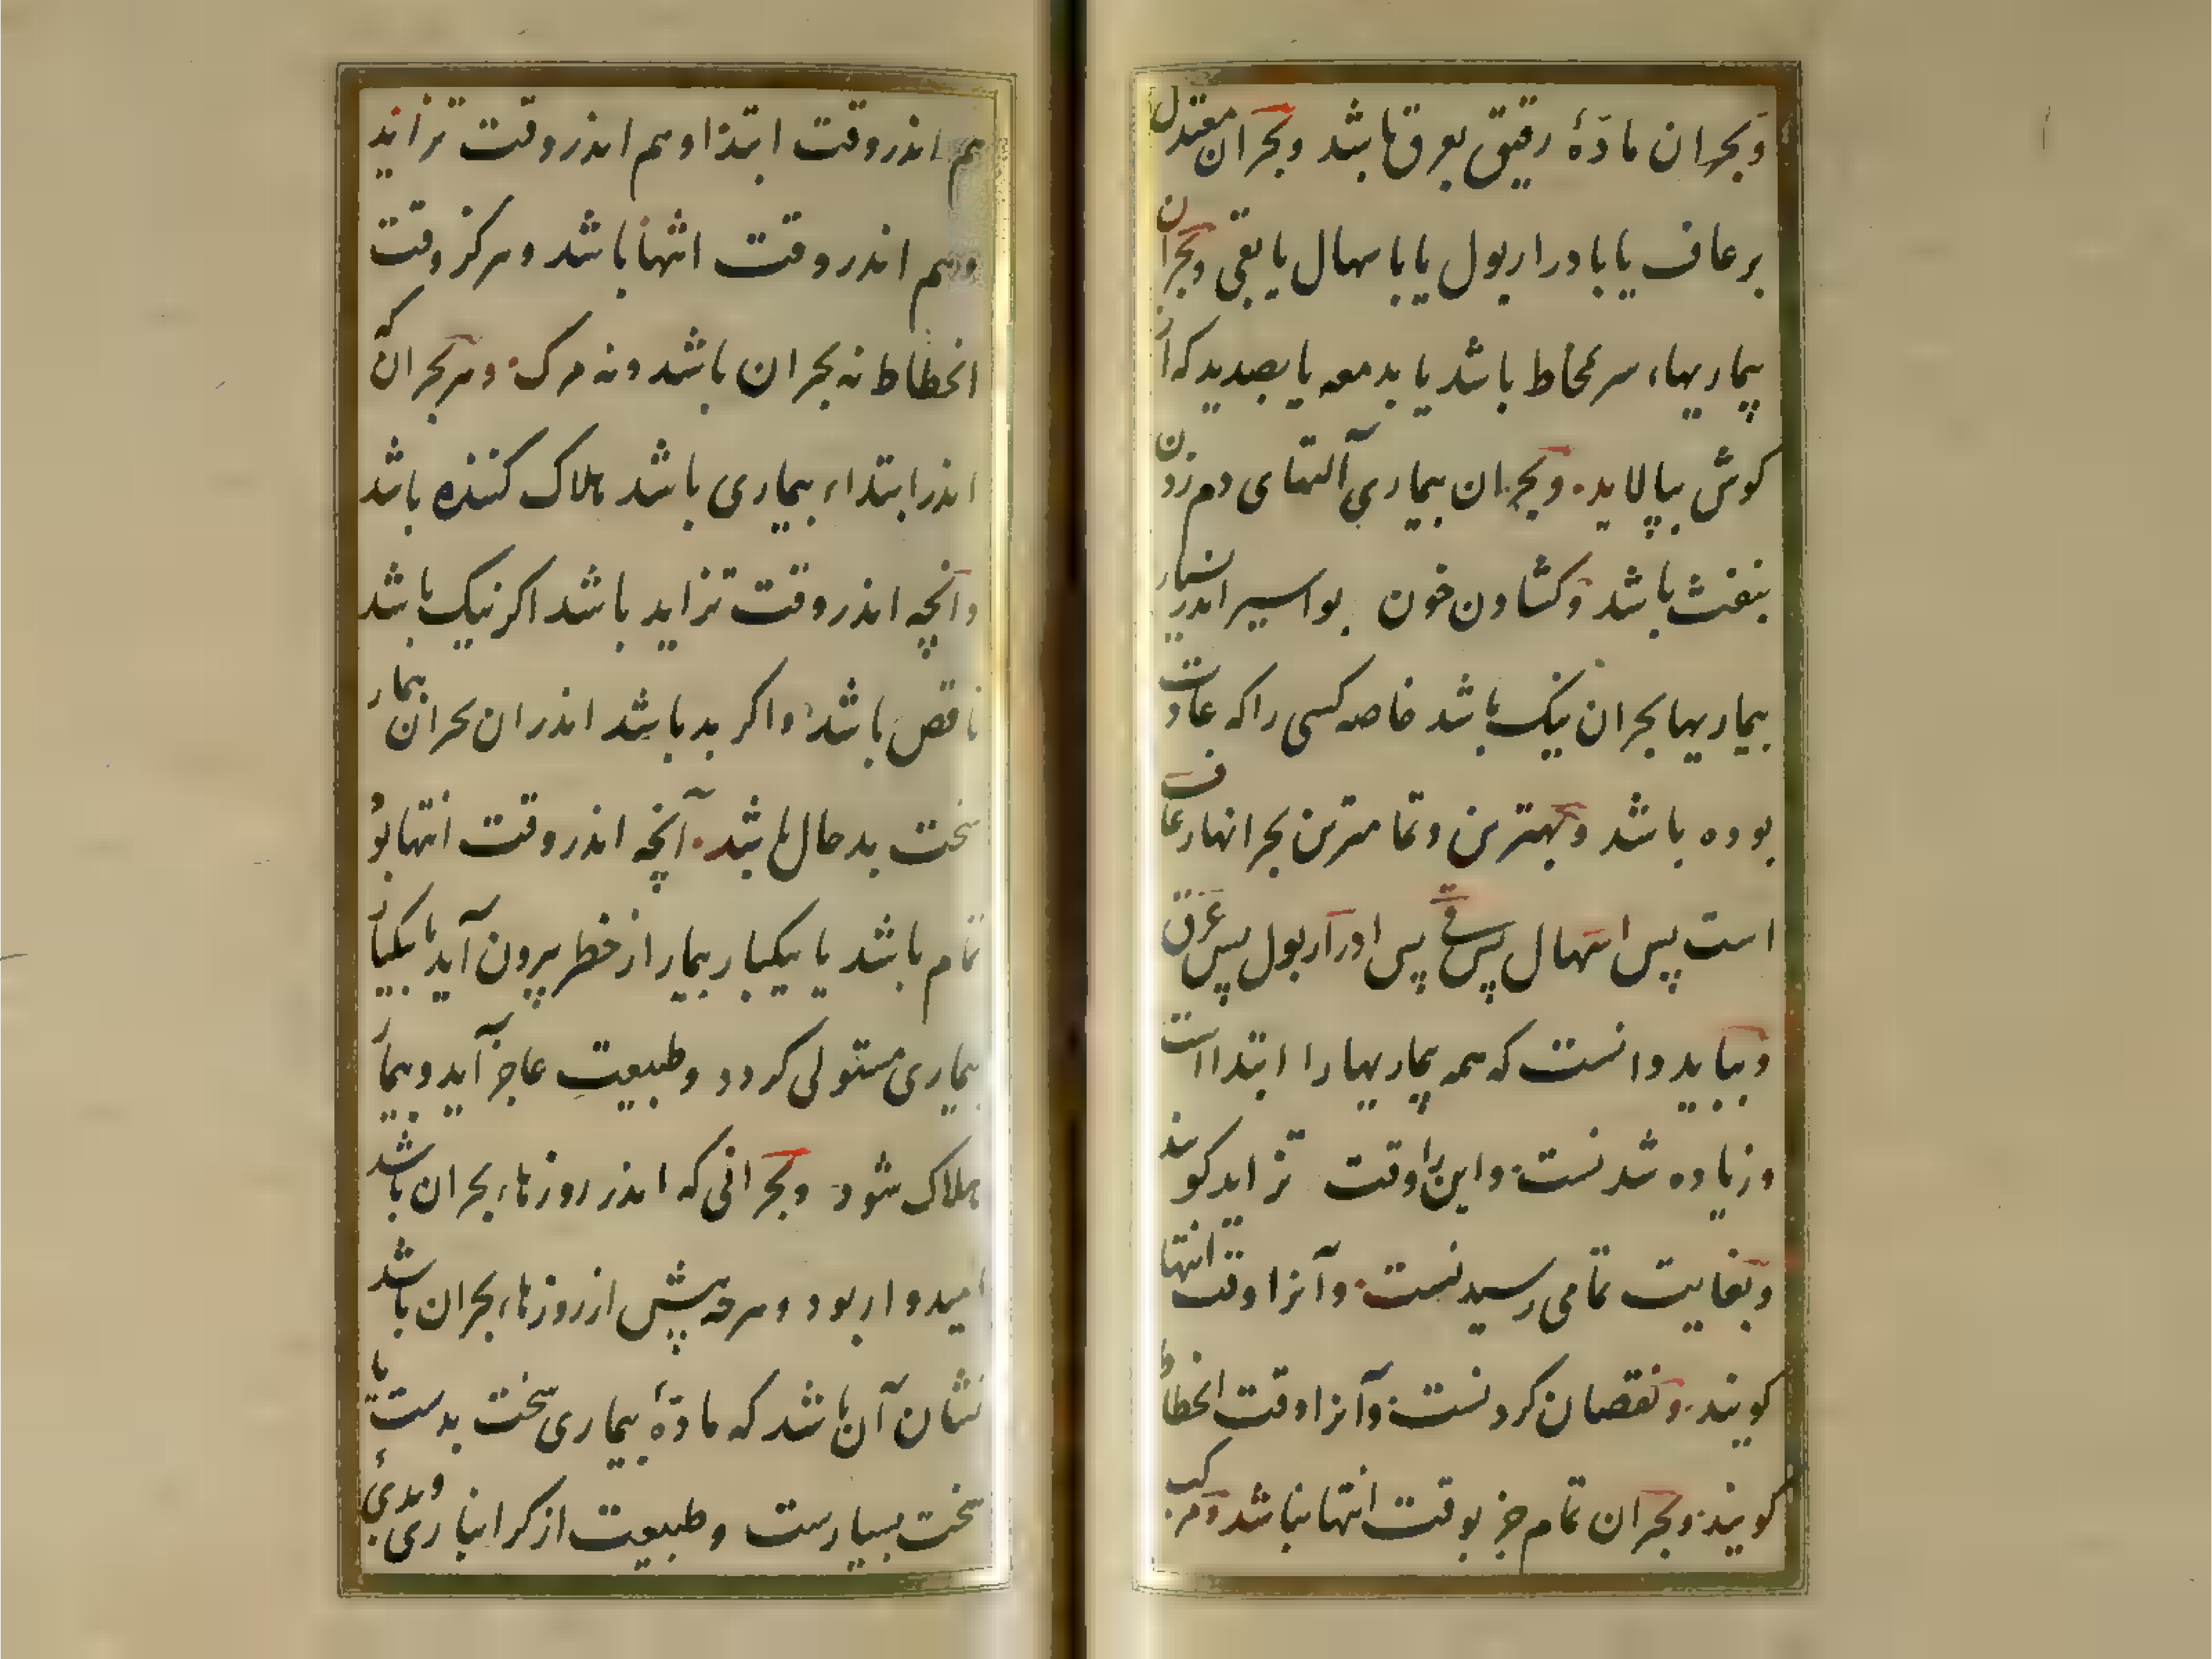 وبحران مادّهٔ رقیق بعرق باشد وبحران معتدل
برعاف یا بادرار بول یا باسهال یا بقی وبحران
بیماریهاء سر بمخاط باشد یا بدمعه یا بصدید که از
کوش بپالاید وبحران بیماری آلتهای دم زدن
بنفث باشد وکشادن خون بواسیر اندر بسیار
بیماریها بحران نیک باشد خاصه کسی را که عادت
بوده باشد وبهترین وتمامترین بحرانها رعاف
است پس اسهال پس قی پس ادرار بول پس عرق
وبباید دانست که همه بیماریها را ابتدا است
وزیاده شدنست واین را وقت تزاید کویند
وبغایت تمامی رسیدنست وآنرا وقت انتها
کویند ونقصان کردنست وآنرا وقت انحطاط
کویند وبحران تمام جز بوقت انتها نباشد ومرکب
هم اندر وقت ابتدا وهم اندر وقت تزاید
وهم اندر وقت انتها باشد وهرکز وقت
انحطاط نه بحران باشد ونه مرک وهر بحران که
اندر ابتداء بیماری باشد هلاک کننده باشد
وآنچه اندر وقت تزاید باشد اکر نیک باشد
ناقص باشد واکر بد باشد اندر ان بحران بیمار
سخت بدحال باشد آنچه اندر وقت انتها بود
تمام باشد یا بیکبار بیمار از خطر بیرون آید یا بیکبار
بیماری مستولی کردد وطبیعت عاجز آید وبیمار
هلاک شود وبحرانی که اندر روزهاء بحران باشد
امیدوار بود وهرچه پیش از روزهاء بحران باشد
نشان آن باشد که مادّهٔ بیماری سخت بدست یا
سخت بسیارست وطبیعت از کرانباری وبدیٔ